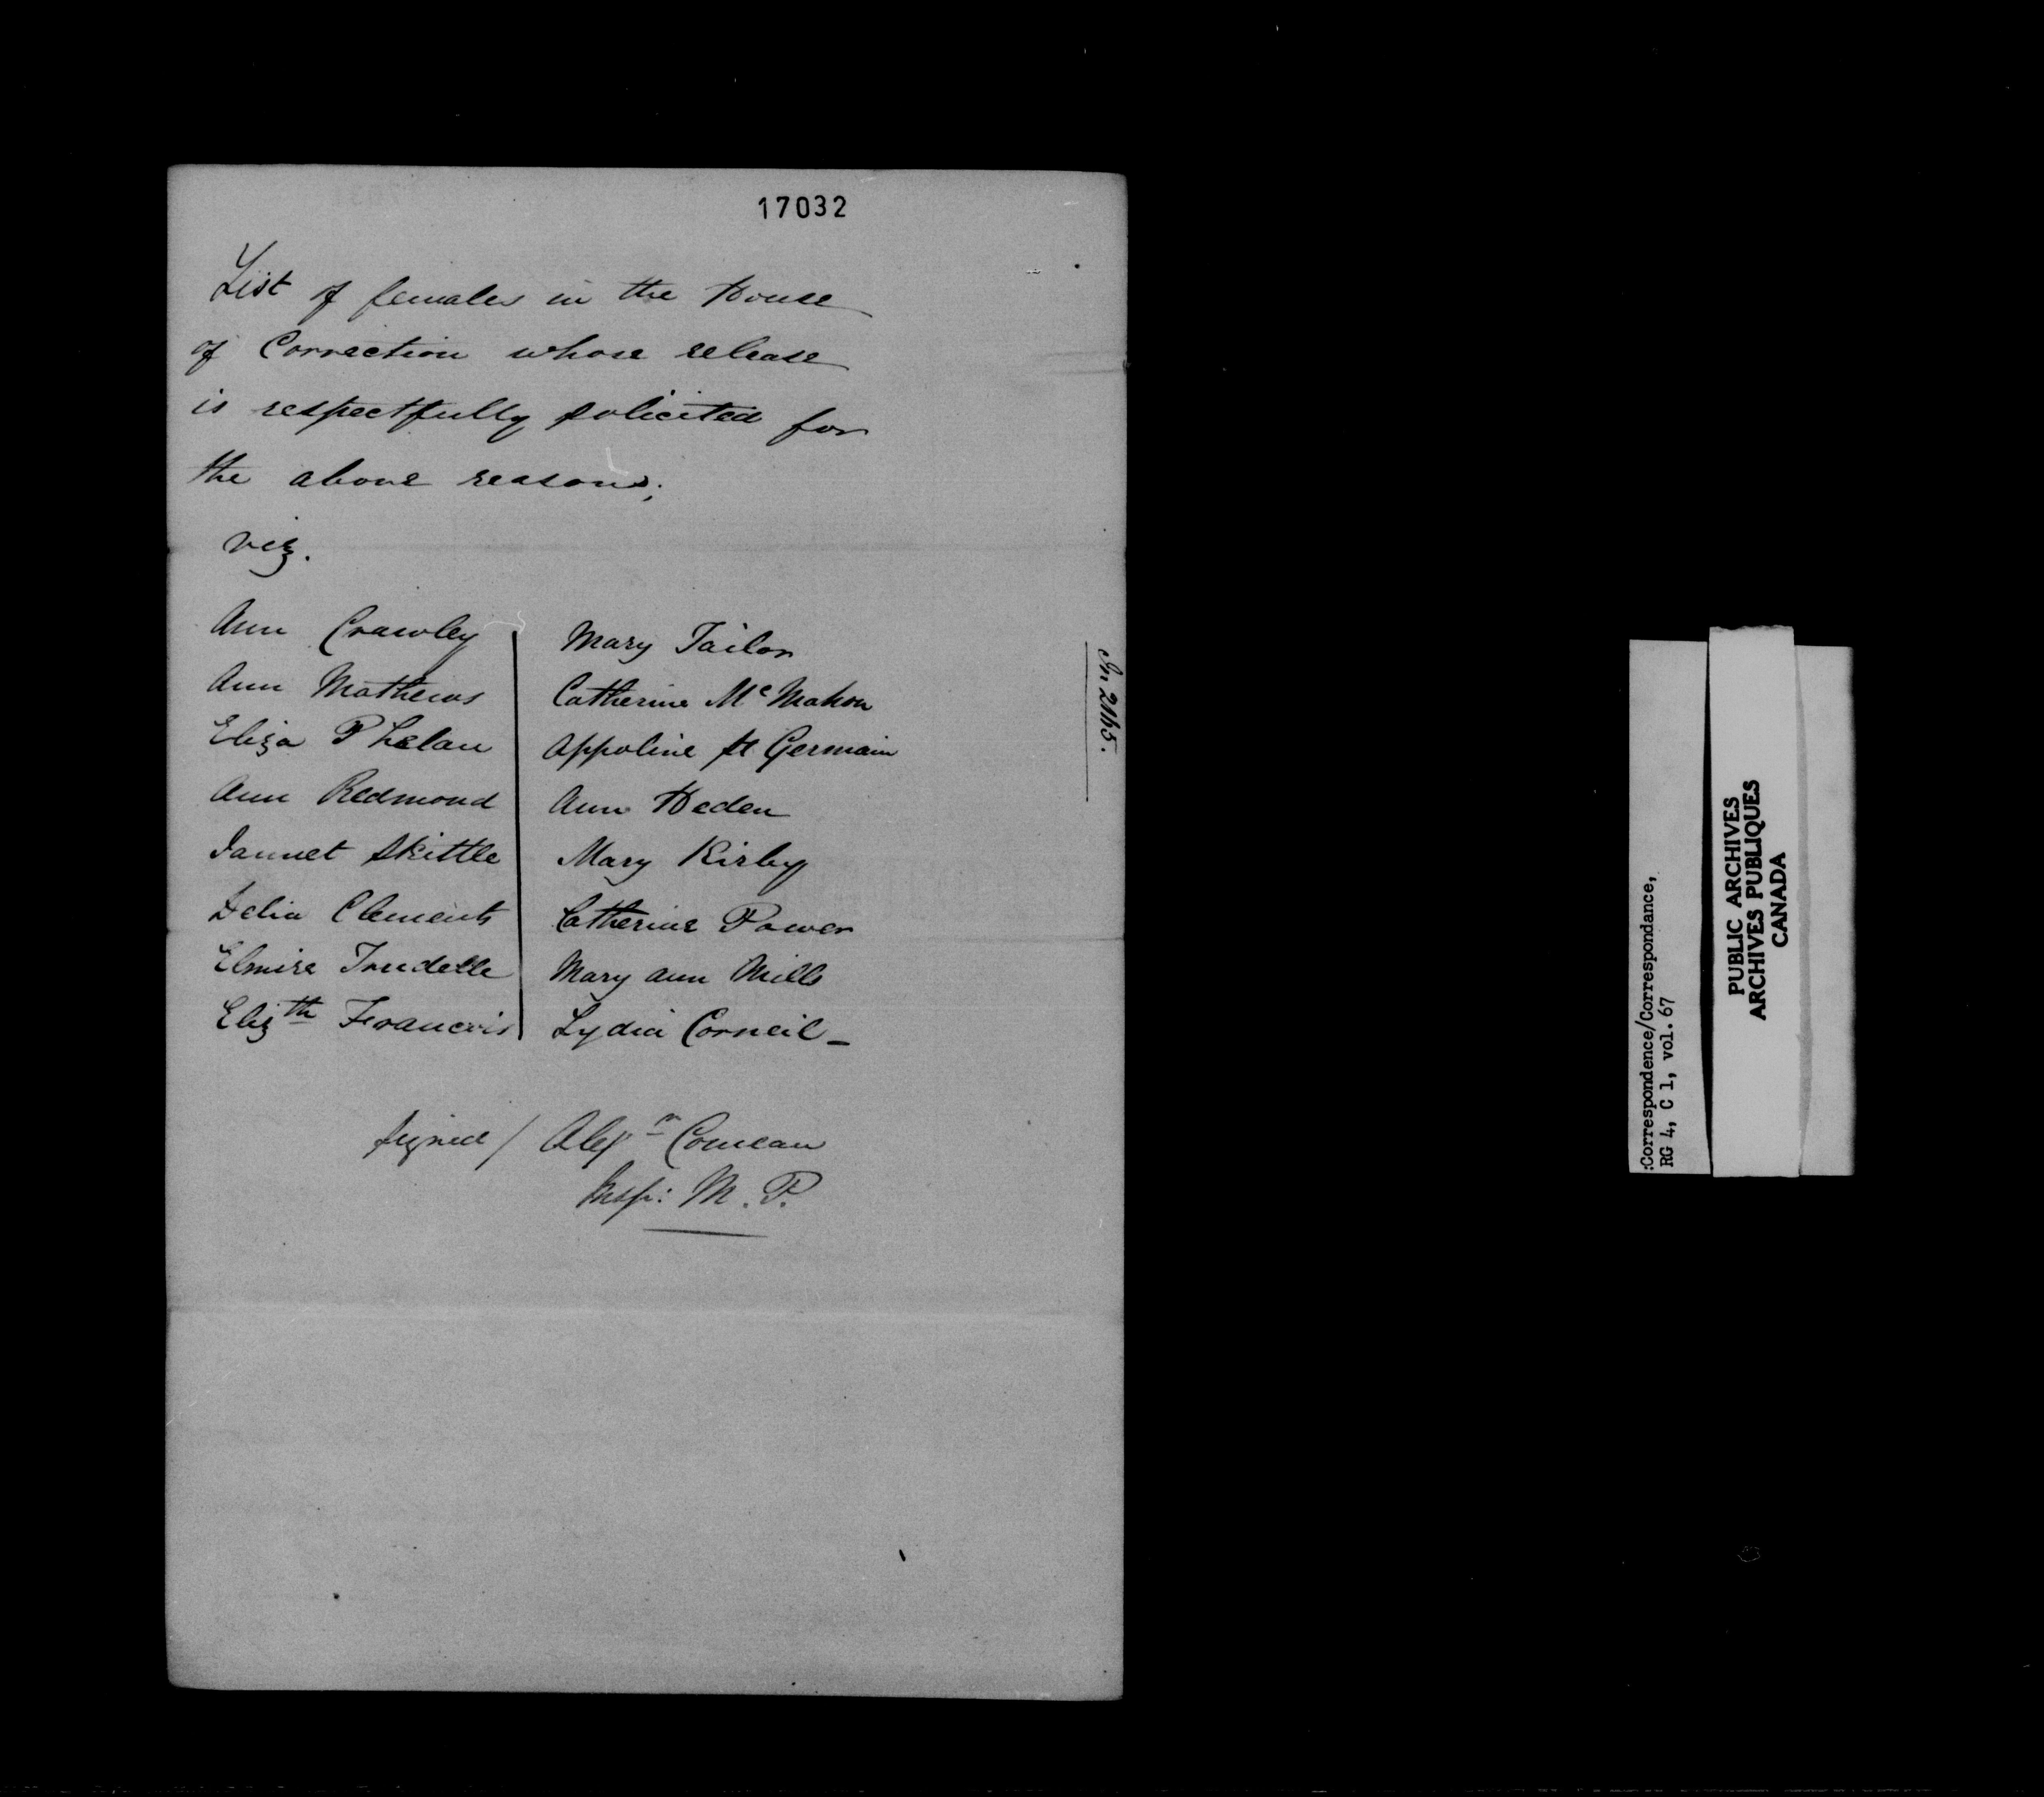 17032
List of females in the House
of Correction whose release
is respectfully solicited for
the above reasons;
viz.
Ann Crawley
Ann Mathews
Eliza Phelan
Ann Redmond
Jannet Skittle
Delia Clements
Elmire Trudelle
Eliz th Francois
Mary Tailor
Catherine Mc Mahon
Appoline St Germain
Ann Heden
Mary Kirby
Catherine Power
Mary Ann Mills
Lydia Corneil -
Signed / Alexr Comeau
Insp: M. P.
:Correspondence/Correspondance,
RG 4, C 1, vol. 67
PUBLIC ARCHIVES
ARCHIVES PUBLIQUES
CANADA